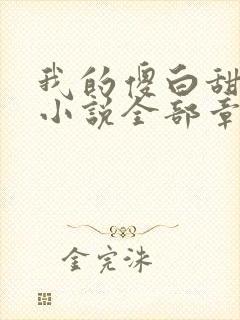 我的傻白甜
小说全部章
金完洙